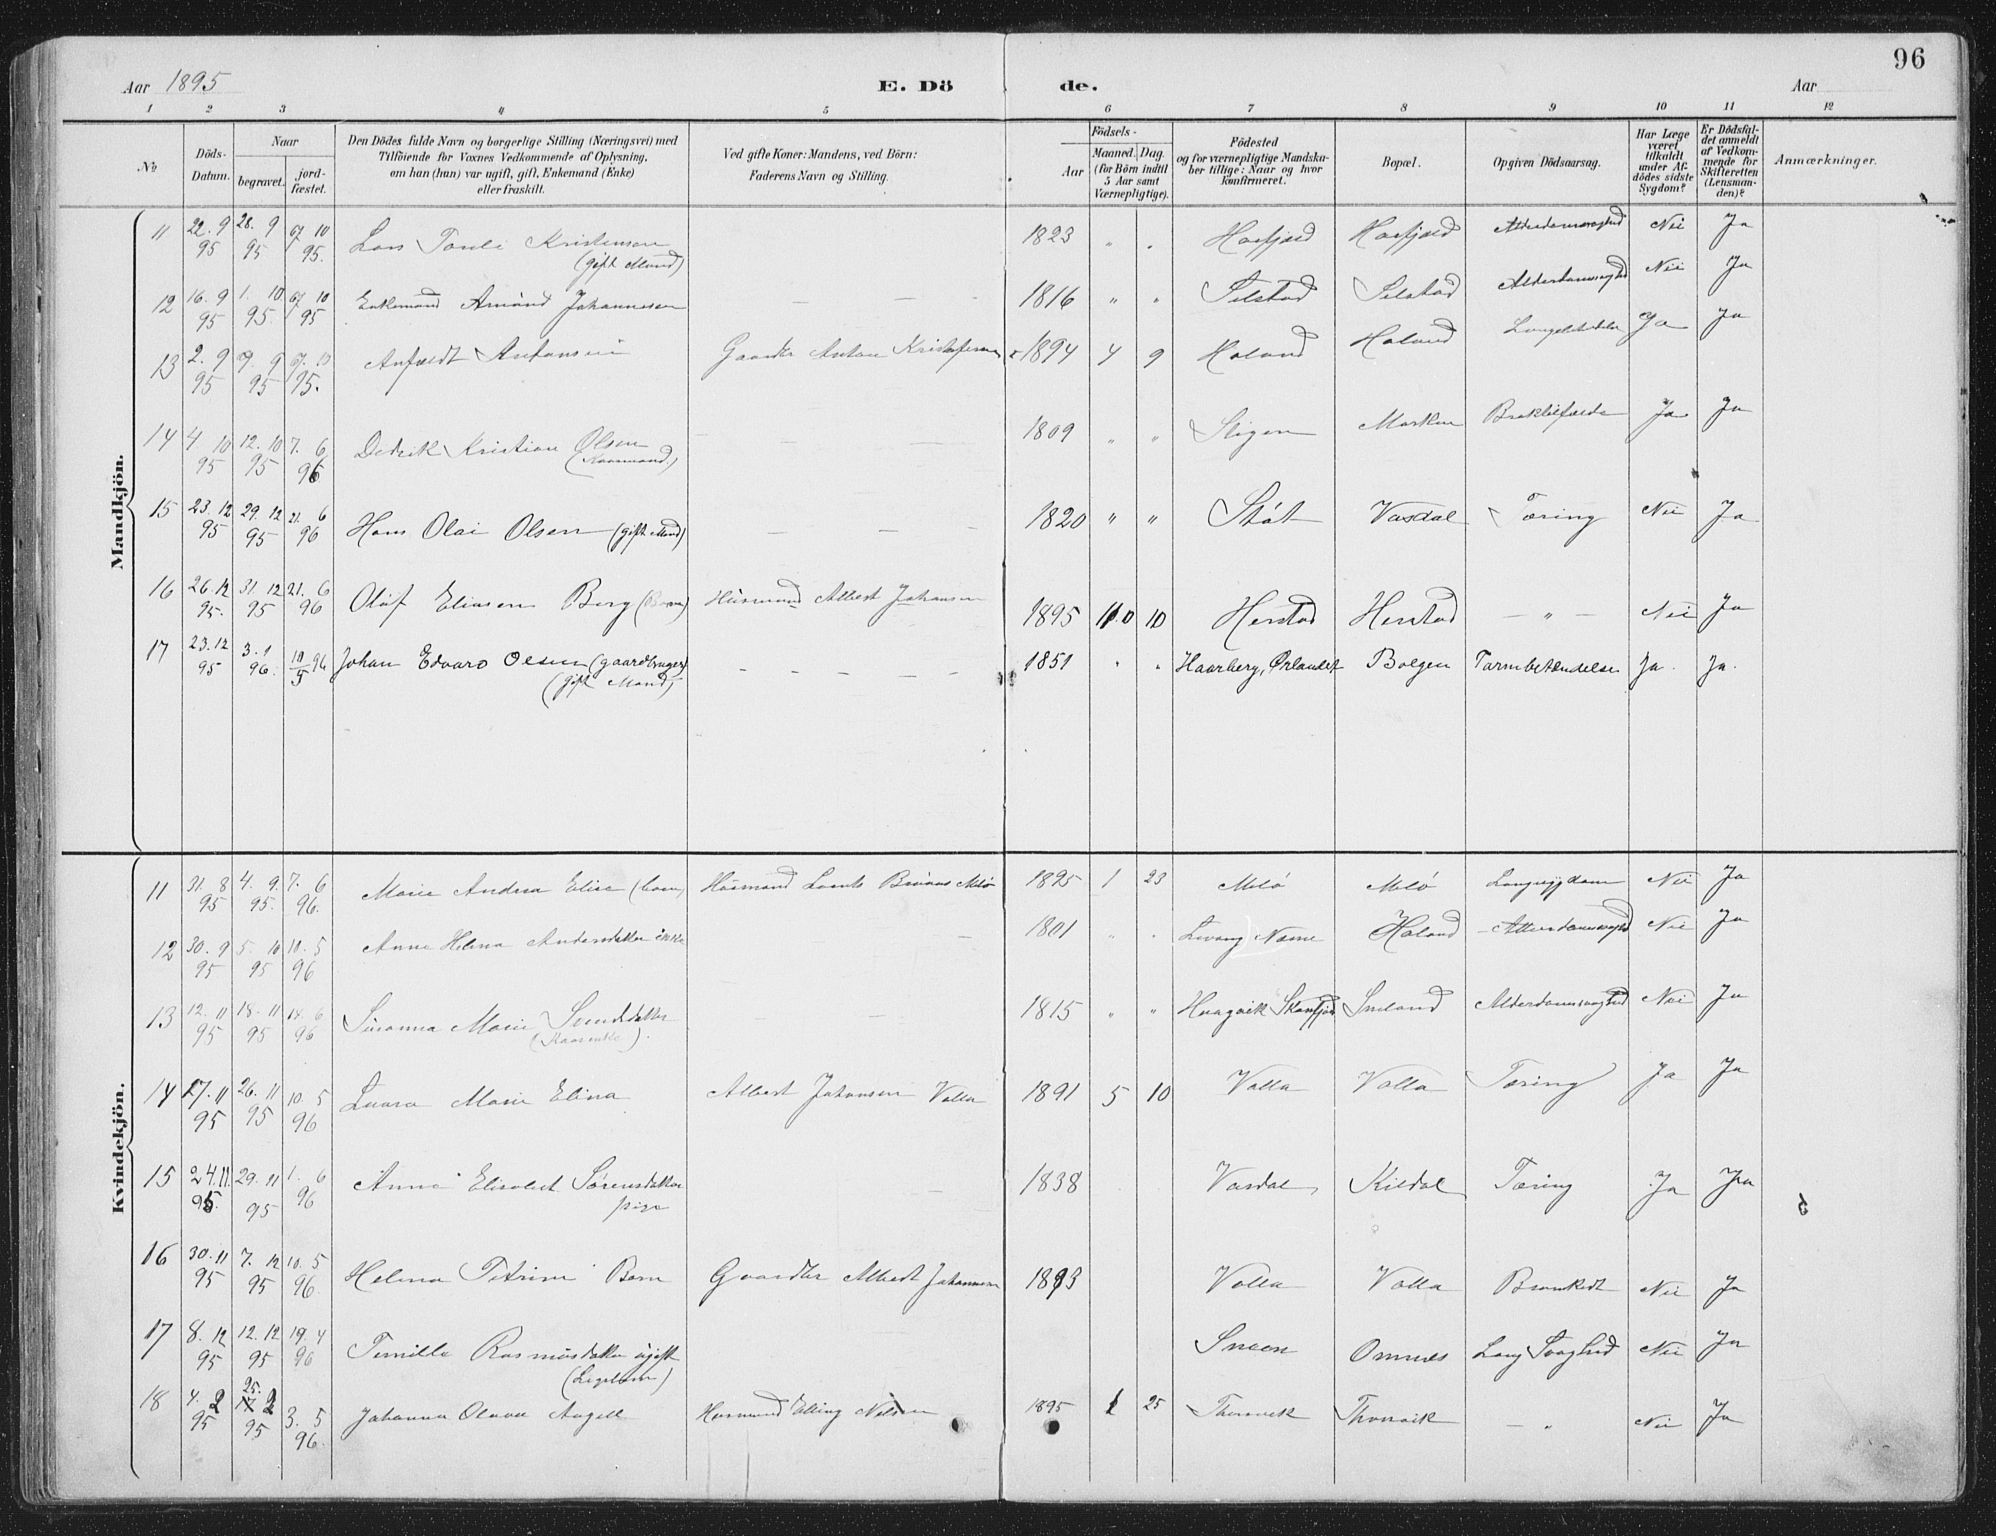 96
Aar 1895
E. Dö
de.
Aar
1 2 3 4 5 6 7 8 9 10 11 12
No
Döds-Datum.
Naar
begravet.
jord-fæstet.
Den Dödes fulde Navn og borgerlige Stilling (Næringsvei) med
Tilföiende for Voxnes Vedkommende af Oplysning,
om han (hun) var ugift, gift, Enkemand (Enke)
eller fraskilt.
Ved gifte Koner: Mandens, ved Börn:
Faderens Navn og Stilling.
Födsels-
Aar
Maaned. Dag.
(for Börn indtil
5 Aar samt
Værnepligtige).
Födested
og for værnepligtige Mandska-
ber tillige: Naar og hvor
konfirmeret.
Bopæl.
Opgiven Dödsaarsag.
Har Læge
været
tilkaldt
under Af-
dödes sidste
Sygdom?
Er Dödsfal-
det anmeldt
af Vedkom-
mende for
Skifteretten
(Lensman-
den)?
Anmærkninger.
Mandkjön.
11 22. 9 95 28. 9 95 10 95. Lars Kristensen (gift Mand) 1823 " " Havfjord Havfjord Alderdomssvaghed Nei Ja
12 16. 9 95 1. 10 95. 10 95 Enkemand Amund Johannesen — — 1816 " " Selstad Selstad Alderdomssvaghed Nei Ja
13 2. 9 95 9. 9 95 95. Anfeldt Antonsen Gaardbr Anton Kristofersen 1894 4 9 Haland Haland Ja Ja
14 4 10 95 12. 10 95 7. 6 96 Dedrik Kristian Olsen (Kaarmand.) — — 1809 " " Stigen Marken Ja Ja
15 23. 12 95 29. 12 95 21. 6 96 Hans Olai Olsen (gift Mand) — — — 1820 " " Støt Vasdal Tæring Nei Ja
16 26. 12 95. 31. 12 95 21. 6 96 Olaf Eliasen Berg (Barn) Husmand Albert Johansen 1895 10 Herstad Herstad — " — Nei Ja
17 23. 12 95 3. 1 96. 10/5 96 Johan Edvard Olsen (gaardbruger) (gift Mand) — — — — 1851 " " Haarberg, Ørlandet Bolgen Tarmbetændelse Ja. Ja.
Kvindekjön.
11 31. 8 95 4. 9. 95. 7. 6 96. Marie Andrea Elise (barn) Husmand Meló 1895 1 23 Meló Meló Nei Ja
12 30. 9 95 5. 10 95 10. 5 96 Anne Helena Andersdatter enke — 1801 " " Haland Alderdomssvaghed Nei Ja
13 12. 11 95 18. 11 95 14. 6 96 Susanna Marie (Kaarenke). — — 1815 " " Alderdomssvaghed Nei Ja
14 17. 11 95 26. 11 95 10. 5 96 Laura Marie Elina Albert Johansen Valla 1891 5 10 Valla Valla Tæring Ja Ja
15 24. 11. 95. 29. 11 95 1. 6 96 Anne Elisabet Sørensdatter pige — 1838 Vasdal Kildal Tæring Ja Ja
16 30. 11 95 7. 12 95 10. 5 96. Helena Petrine Barn Gaardbr Albert Johansen 1893 Valla Valla Nei Ja
17 8. 12 95 12. 12 95 19. 4 96 Rasmusdatter ugift (Legdlem) Sneen Omnes Lang Svaghed Nei Ja
18 4. 2 95 25. 2 95 3. 5 96. Johanna Olava Angell Husmand Elling Nilsen 1895 1 25 Thorsvik Thorsvik — " Nei Ja